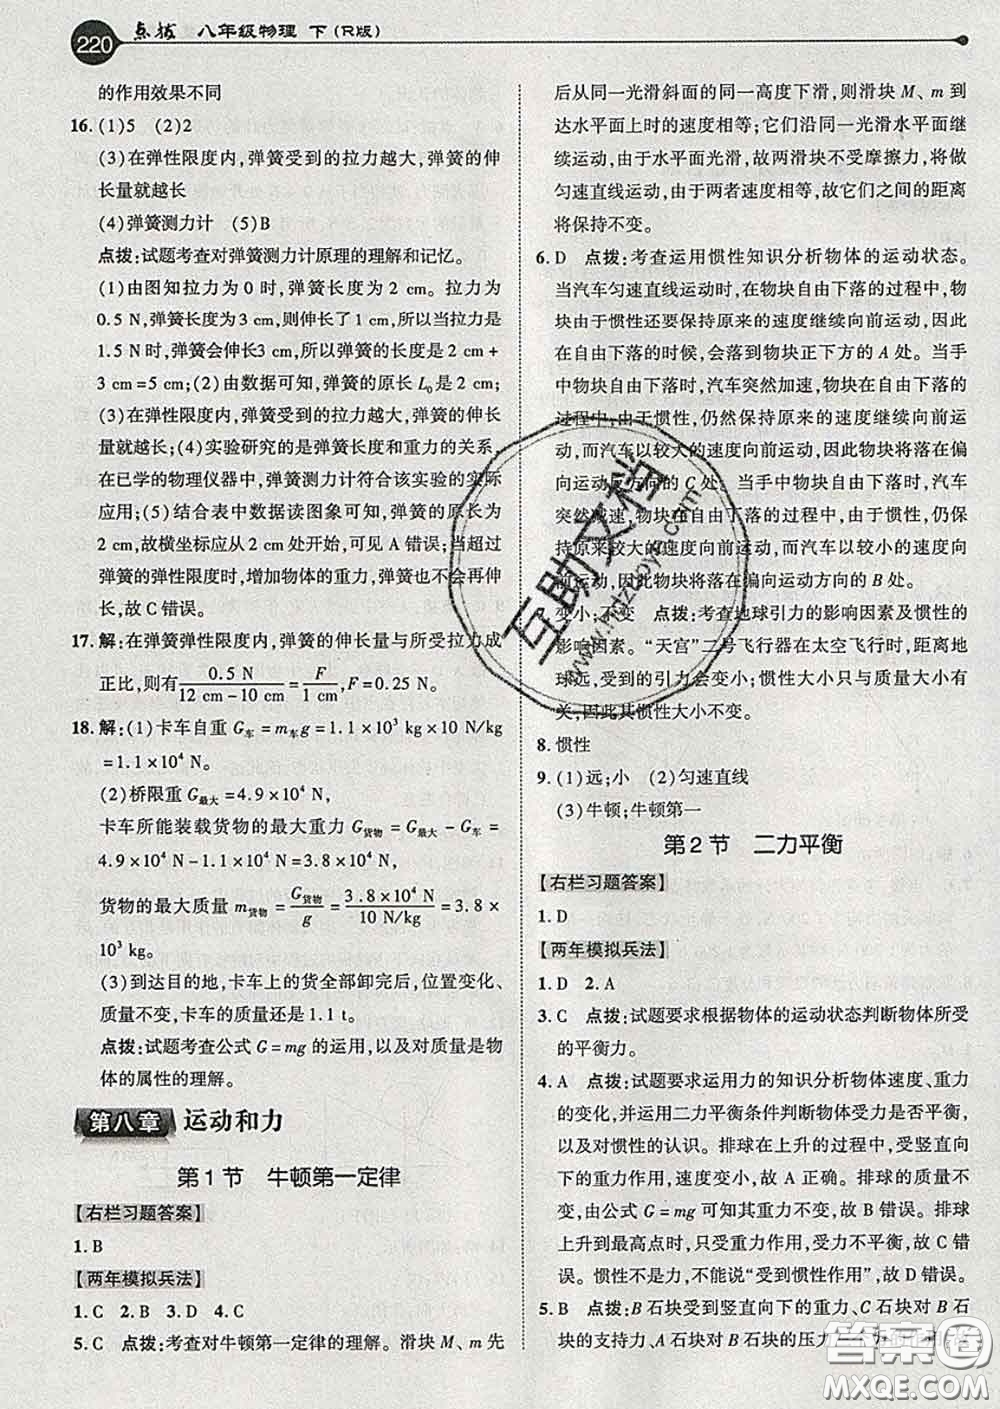 220 点拨 八年级物理 下(R版)
的作用效果不同
16. (1)5 (2)2
(3)在弹性限度内,弹簧受到的拉力越大,弹簧的伸
长量就越长
(4)弹簧测力计 (5)B
点拨:试题考查对弹簧测力计原理的理解和记忆。
(1)由图知拉力为0时,弹簧长度为2 cm。拉力为
0.5 N,弹簧长度为3 cm,则伸长了1 cm,所以当拉力是
1.5 N时,弹簧会伸长3 cm,所以弹簧的长度是2 cm+
3 cm=5 cm;(2)由数据可知,弹簧的原长L₀是2 cm;
(3)在弹性限度内,弹簧受到的拉力越大,弹簧的伸长
量就越长;(4)实验研究的是弹簧长度和重力的关系,
在已学的物理仪器中,弹簧测力计符合该实验的实际
应用;(5)结合表中数据读图象可知,弹簧的原长为
2 cm,故横坐标应从2 cm处开始,可见A错误;当超过
弹簧的弹性限度时,增加物体的重力,弹簧也不会再伸
长,故C错误。
17. 解:在弹簧弹性限度内,弹簧的伸长量与所受拉力成
正比,则有0.5 N/(12 cm-10 cm)=F/1 cm,F=0.25 N。
18. 解:(1)卡车自重G车=m车g=1.1×10³ kg×10 N/kg
=1.1×10⁴ N。
(2)桥限重G最大=4.9×10⁴ N,
卡车所能装载货物的最大重力G货物=G最大-G车=
4.9×10⁴ N-1.1×10⁴ N=3.8×10⁴ N,
货物的最大质量m货物=G货物/g=3.8×10⁴ N/10 N/kg=3.8×
10³ kg。
(3)到达目的地,卡车上的货全部卸完后,位置变化、
质量不变,卡车的质量还是1.1 t。
点拨:试题考查公式G=mg的运用,以及对质量是物
体的属性的理解。
第八章 运动和力
第1节 牛顿第一定律
【右栏习题答案】
1. B
【两年模拟兵法】
1. C 2. B 3. D 4. C
5. C 点拨:考查对牛顿第一定律的理解。滑块M、m先
后从同一光滑斜面的同一高度下滑,则滑块M、m到
达水平面上时的速度相等;它们沿同一光滑水平面继
续运动,由于水平面光滑,故两滑块不受摩擦力,将做
匀速直线运动,由于两者速度相等,故它们之间的距离
将保持不变。
6. D 点拨:考查运用惯性知识分析物体的运动状态。
当汽车匀速直线运动时,在物块自由下落的过程中,物
块由于惯性还要保持原来的速度继续向前运动,因此
在自由下落的时候,会落到物块正下方的A处。当手
中物块自由下落时,汽车突然加速,物块在自由下落的
过程中,由于惯性,仍然保持原来的速度继续向前运
动,而汽车以较大的速度向前运动,因此物块将落在偏
向运动反方向的C处。当手中物块自由下落时,汽车
突然减速,物块在自由下落的过程中,由于惯性,仍保
持原来较大的速度向前运动,而汽车以较小的速度向
前运动,因此物块将落在偏向运动方向的B处。
变小;不变 点拨:考查地球引力的影响因素及惯性的
影响因素。“天宫”二号飞行器在太空飞行时,距离地
球远,受到的引力会变小;惯性大小只与质量大小有
关,因此其惯性大小不变。
8. 惯性
9. (1)远;小 (2)匀速直线
(3)牛顿;牛顿第一
第2节 二力平衡
【右栏习题答案】
1. D
【两年模拟兵法】
1. D 2. A
3. C 点拨:试题要求根据物体的运动状态判断物体所受
的平衡力。
4. A 点拨:试题要求运用力的知识分析物体速度、重力
的变化,并运用二力平衡条件判断物体受力是否平衡,
以及对惯性的认识。排球在上升的过程中,受竖直向
下的重力,速度变小,故A正确。排球的质量不
变,由公式G=mg可知其重力不变,故B错误。排球
上升到最高点时,只受重力,不受平衡力,故C错
误。惯性不是力,不能说“受到惯性作用”,故D错误。
5. B 点拨:B石块受到竖直向下的重力、C石块对B石
块的支持力、A石块对B石块的压力
互助文档
www.hdzuoye.com
答案圈
MXQE.COM